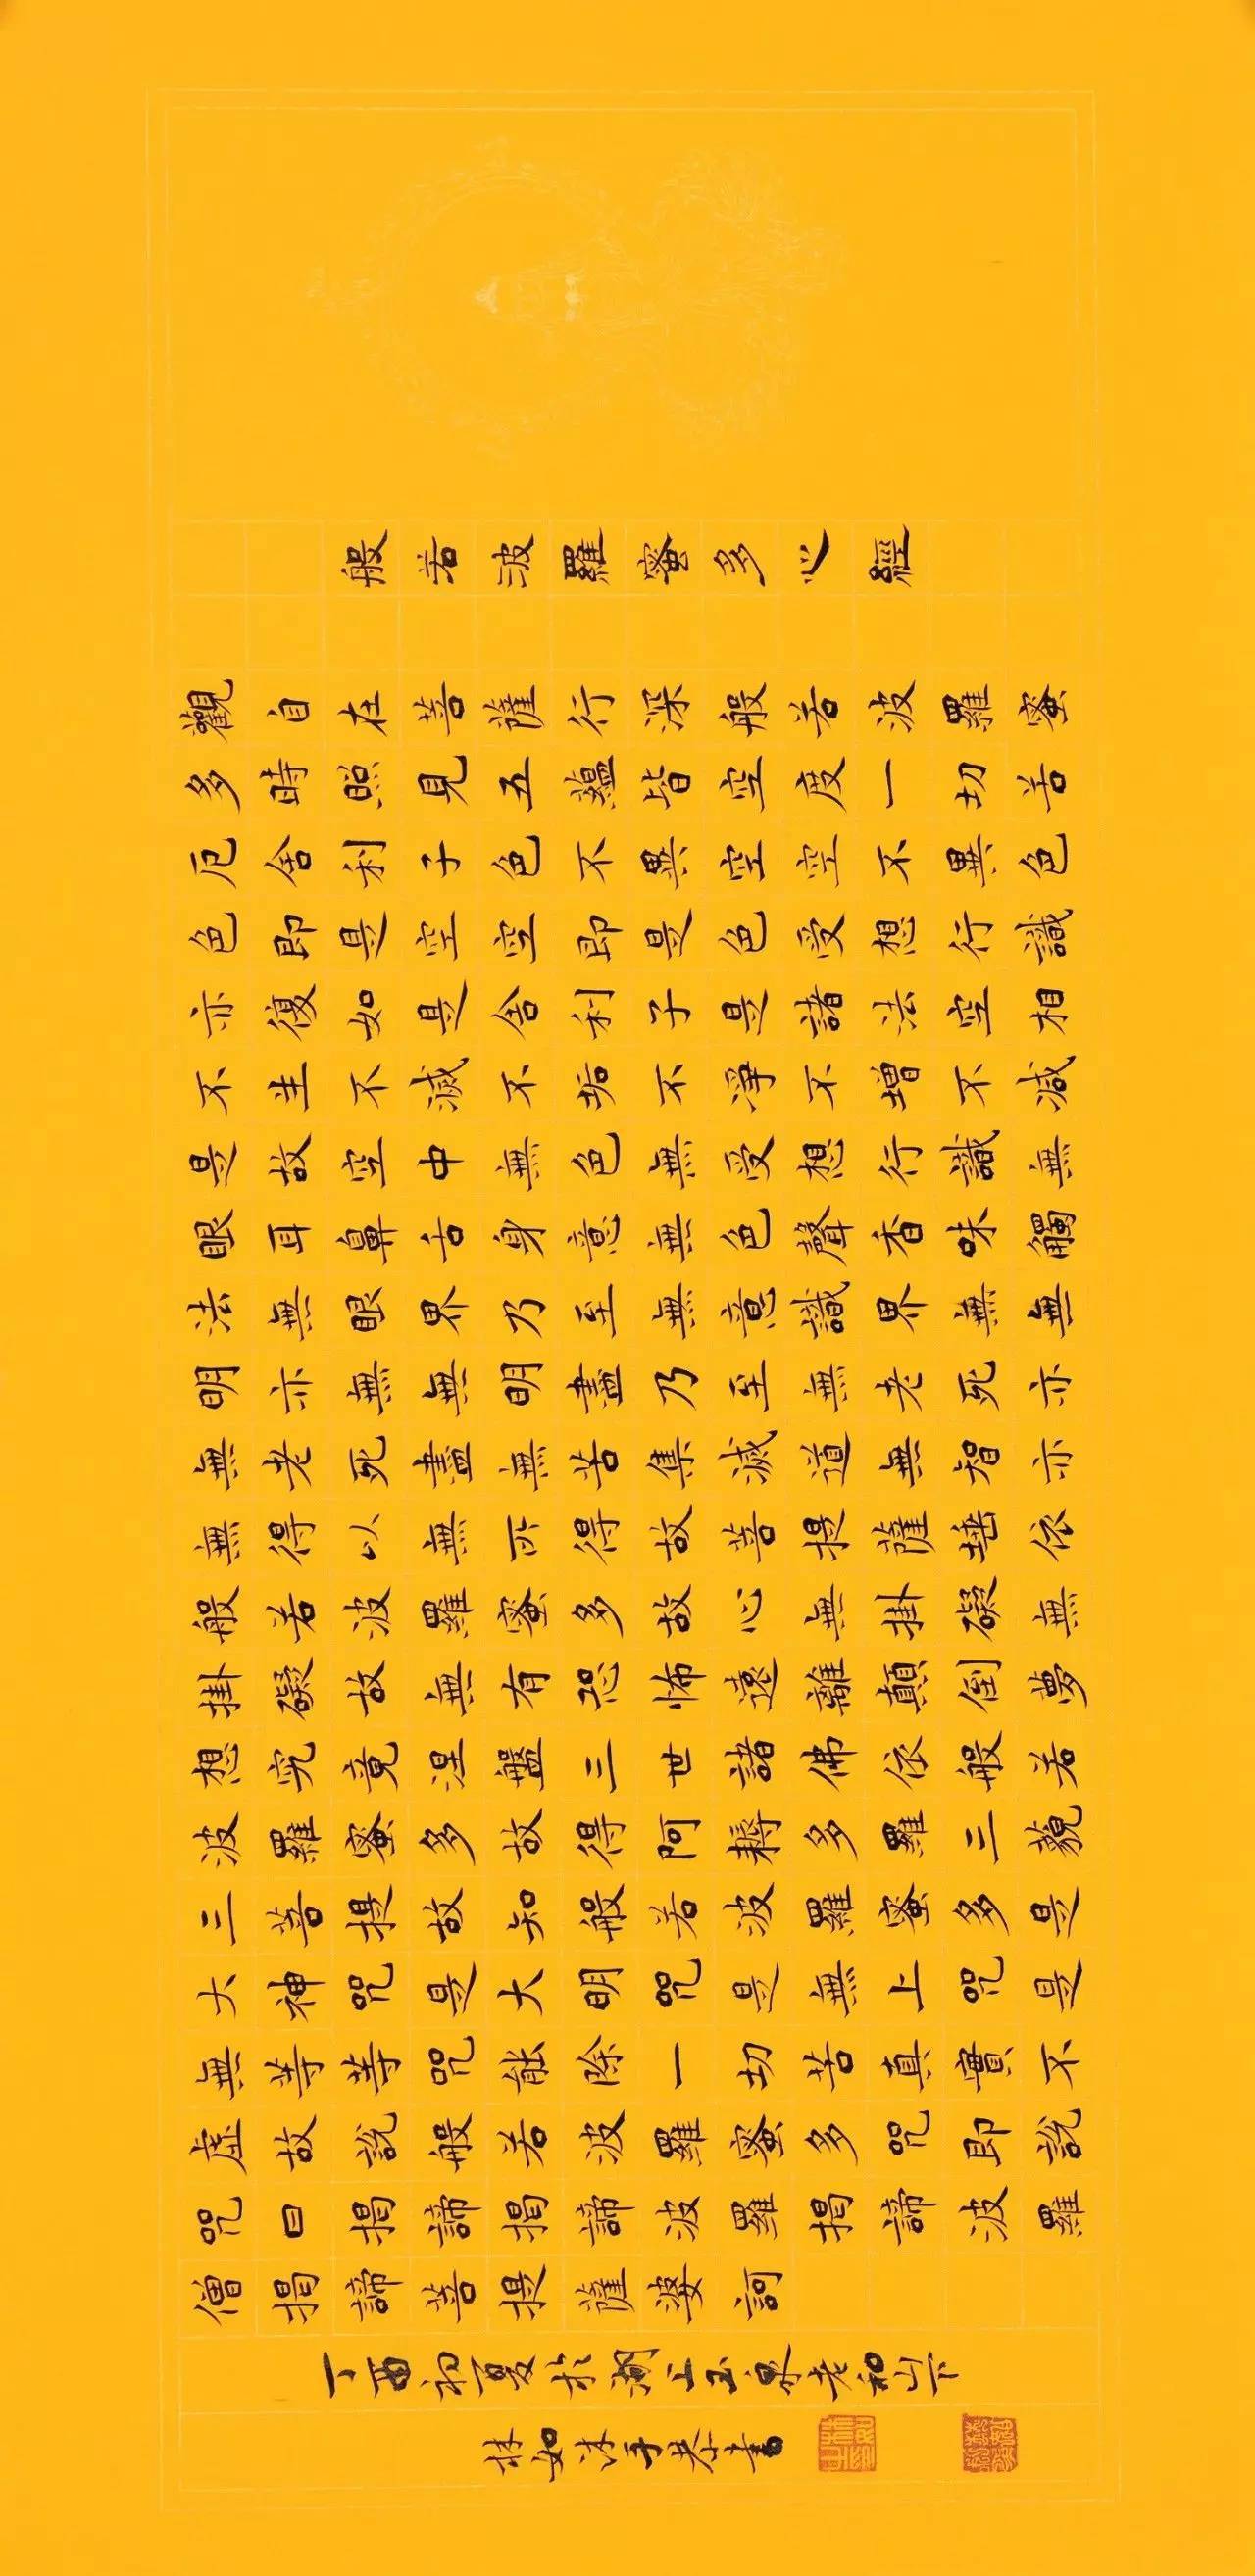 般若波羅蜜多心經
觀自在菩薩行深般若波羅蜜
多時照見五蘊皆空度一切苦
厄舍利子色不異空空不異色
色即是空空即是色受想行識
亦復如是舍利子是諸法空相
不生不滅不垢不淨不增不減
是故空中無色無受想行識無
眼耳鼻舌身意無色聲香味觸
法無眼界乃至無意識界無無
明亦無無明盡乃至無老死亦
無老死盡無苦集滅道無智亦
無得以無所得故菩提薩埵依
般若波羅蜜多故心無掛礙無
掛礙故無有恐怖遠離顛倒夢
想究竟涅盤三世諸佛依般若
波羅蜜多故得阿耨多羅三藐
三菩提故知般若波羅蜜多是
大神咒是大明咒是無上咒是
無等等咒能除一切苦真實不
虛故說般若波羅蜜多咒即說
咒曰揭諦揭諦波羅揭諦波羅
僧揭諦菩提薩婆訶
丁酉初夏於湖上玉泉老和山下
林如沐手恭書